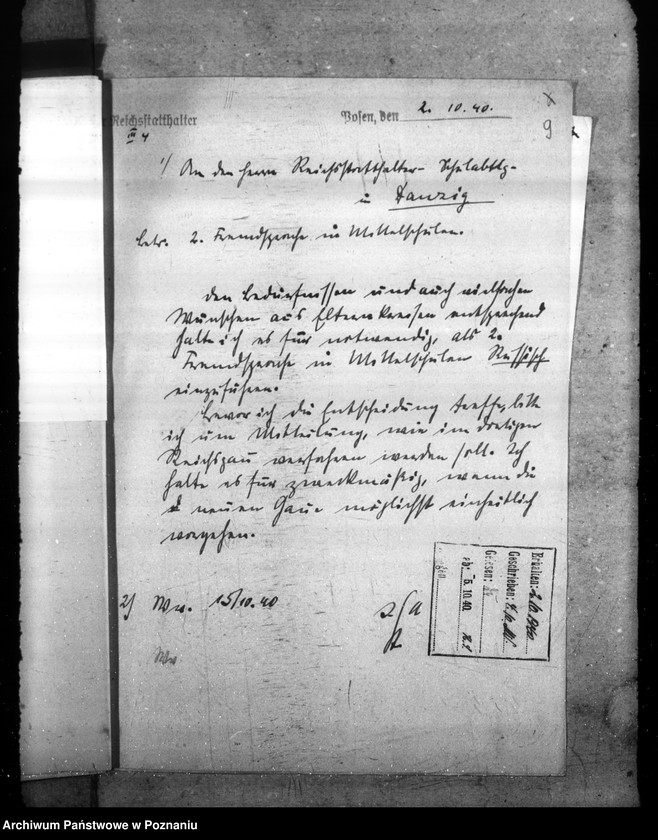 Reichsstatthalter
Posen, den 2. 10. 40.
III 4
9
1/ An den Herrn Reichsstatthalter - Schulabtlg -
in Danzig
Betr. 2. Fremdsprache in Mittelschulen.
Den Bedürfnissen und auch vielfachen
Wünschen aus Elternkreisen entsprechend
halte ich es für notwendig, als 2.
Fremdsprache in Mittelschulen Russisch
einzuführen.
Bevor ich die Entscheidung treffe, bitte
ich um Mitteilung, wie im dortigen
Reichsgau verfahren werden soll. Ich
halte es für zweckmäßig, wenn die
neuen Gaue möglichst einheitlich
vorgehen.
2/ Wv. 15/10.40
Wv
Erhalten:
Geschrieben:
Gelesen:
ab: -5. 10. 40.
Archiwum Państwowe w Poznaniu